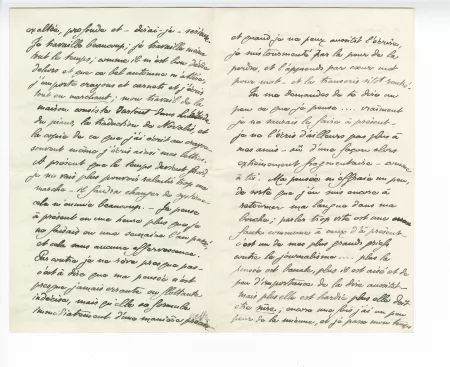 exaltée, profonde et - dirai-je -
Je travaille beaucoup; je travaille même
tout le temps; comme il m'est bon
dehors et que ce bel automne m'attire,
j'emporte crayons et carnets et j'écris
tout en marchant; mon travail de la
maison consiste surtout dans l'étude
du piano, la traduction de Novalis, et
la copie de ce que j'ai écrit au crayon
souvent même j'écris ainsi mes lettres.
Et à présent que le temps devient froid
je ne vais plus pouvoir ralentir trop ma
marche - il faudra changer de système -
cela m'ennuie beaucoup. - Je pense
à présent en une heure plus que je
ne faisais en une semaine l'an passé
et cela sans aucune effervescence.
Par contre je ne rêve presque pas -
c'est à dire que ma pensée n'est
presque jamais errante ou flottante
indécise, mais qu'elle se formule
immédiatement d'une manière
et quand je ne peux aussitôt l'écrire,
je suis tourmenté par la peur de la
perdre, et l'apprends par cœur mot
pour mot - et la transcris sitôt rentré.
Tu me demandes de te dire un
peu ce que je pense .... vraiment
je ne saurais le faire à présent -
je ne l'écris d'ailleurs pas plus à
mes amis - où d'une façon alors
extrêmement fragmentaire - comme
à toi. Ma pensée m'effraie un peu,
de sorte que j'en suis encore à
retourner ma langue dans ma
bouche; parler trop vite est une
faute commune à ceux d'à présent
c'est un de mes plus grands griefs
contre le journalisme .... plus la
pensée est banale, plus il est aisé et de
peu d'importance de la dire aussitôt -
mais plus elle est hardie plus elle doit
être sûre; encore une fois j'ai un peu
peur de la mienne, et je passe mon temps